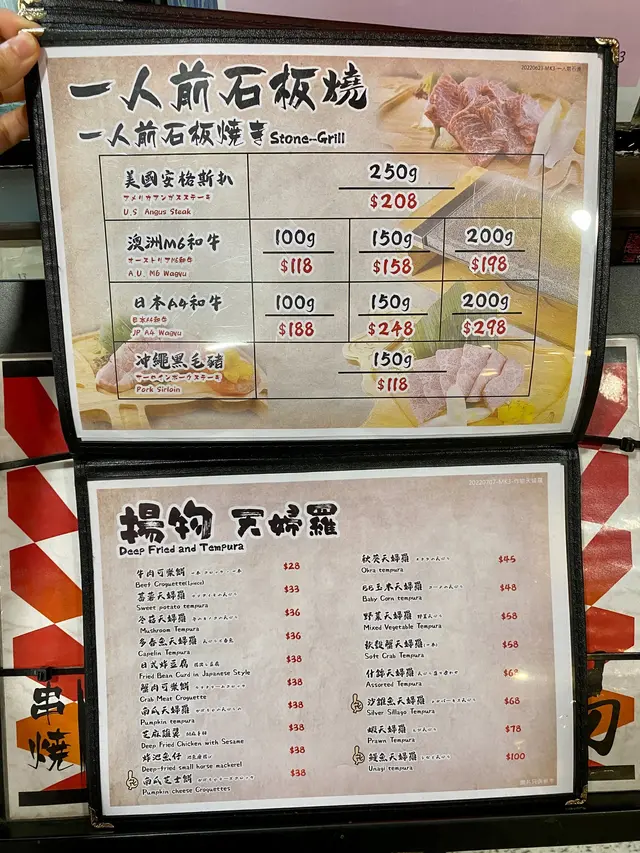 一人前石板燒
一人前石板燒き Stone-Grill
美國安格斯扒
アメリカアンガスステーキ
U.S Angus Steak
250g
$208
澳洲M6和牛
A.U. M6 Wagyu
100g 150g 200g
$118 $158 $198
日本A4和牛
日本A4和牛
JP A4 Wagyu
100g 150g 200g
$188 $248 $298
沖繩黑毛豬
Pork Sirloin
150g
$118
揚物 天婦羅
Deep Fried and Tempura
牛肉可樂餅 $28
Beef Croquette(1piece)
蕃薯天婦羅 $33
Sweet potato tempura
冬菇天婦羅 $36
Mushroom Tempura
多春魚天婦羅 $36
Capelin Tempura
日式炸豆腐 $38
Fried Bean Curd in Japanese Style
蟹肉可樂餅 $38
Crab Meat Croquette
南瓜天婦羅 $38
Pumpkin tempura
芝麻雞翼 $38
Deep Fried Chicken with Sesame
炸池魚仔 $38
Deep-fried small horse mackerel
南瓜芝士餅 $38
Pumpkin cheese Croquettes
秋葵天婦羅 $45
Okra tempura
BB玉米天婦羅 $48
Baby Corn tempura
野菜天婦羅 $58
Mixed Vegetable Tempura
軟殼蟹天婦羅 $58
Soft Crab Tempura
什錦天婦羅
Assorted Tempura
沙鑽魚天婦羅 $68
Silver Sillago Tempura
蝦天婦羅 $78
Prawn Tempura
鰻魚天婦羅 $100
Unagi tempura
串燒